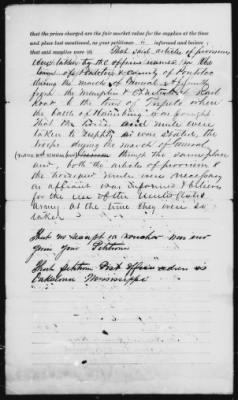 that the prices charged are the fair market value for the supplies at the time
and place last mentioned, as your petitioner is informed and believes;
said supplies were That said articles of provisions
were taken by the officers named, in the
town of Pontotoc & county of Pontotoc
during the march of General
from the Memphis & Charleston Rail
Road to the town of Tupelo where
the battle of Harrisburg was fought
that the said mule were
taken to supply or was
troops during the march of General
things the same place
and, both the articles of provisions &
the mule were necessary
as affiant was informed & believes
for the use of the United States
army at the time they were so
taken
That no receipt or voucher was ever
given your Petitioner
That petitioners Post office address is
Mississippi